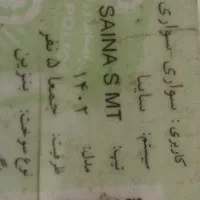 کاربری: سواری سواری
سیستم: سایپا
تیپ: SAINA S MT
مدل: ۱۴۰۲
ظرفیت: جمعا ۵ نفر
نوع سوخت: بنزین